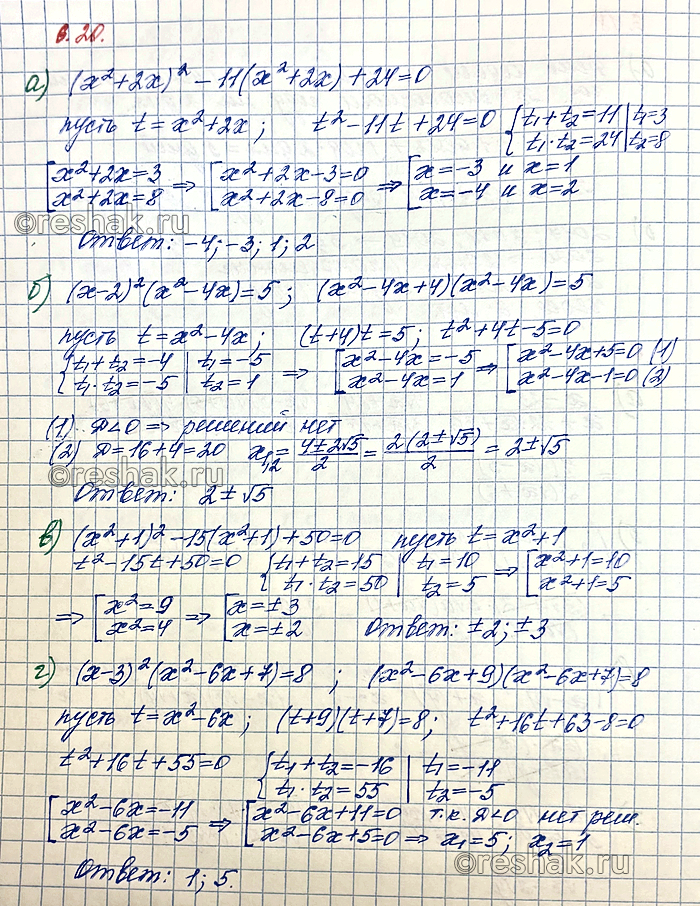 6.20.
а) (x²+2x)² − 11(x²+2x)+24=0
пусть t=x²+2x; t²−11t+24=0 {t₁+t₂=11 | t₁=3
{t₁·t₂=24 | t₂=8
[x²+2x=3 ⇒ [x²+2x−3=0 ⇒ [x=−3 и x=1
[x²+2x=8 [x²+2x−8=0 [x=−4 и x=2
©reshak.ru
Ответ: −4; −3; 1; 2
б) (x−2)²(x²−4x)=5; (x²−4x+4)(x²−4x)=5
пусть t=x²−4x; (t+4)t=5; t²+4t−5=0
{t₁+t₂=−4 | t₁=−5 ⇒ [x²−4x=−5 ⇒ [x²−4x+5=0 (1)
{t₁·t₂=−5 | t₂=1 [x²−4x=1 [x²−4x−1=0 (2)
(1) D<0 ⇒ решений нет
(2) D=16+4=20 x₁,₂=(4±2√5)/2=(2(2±√5))/2=2±√5
©reshak.ru
Ответ: 2±√5
в) (x²+1)²−15(x²+1)+50=0 пусть t=x²+1
t²−15t+50=0 {t₁+t₂=15 | t₁=10 ⇒ [x²+1=10
{t₁·t₂=50 | t₂=5 [x²+1=5
⇒ [x²=9 ⇒ [x=±3
[x²=4 [x=±2 Ответ: ±2; ±3
г) (x−3)²(x²−6x+7)=8; (x²−6x+9)(x²−6x+7)=8
пусть t=x²−6x; (t+9)(t+7)=8; t²+16t+63−8=0
t²+16t+55=0 {t₁+t₂=−16 | t₁=−11
{t₁·t₂=55 | t₂=−5
[x²−6x=−11 ⇒ [x²−6x+11=0 т.к. D<0 нет реш.
[x²−6x=−5 [x²−6x+5=0 ⇒ x₁=5; x₂=1
©reshak.ru
Ответ: 1; 5.